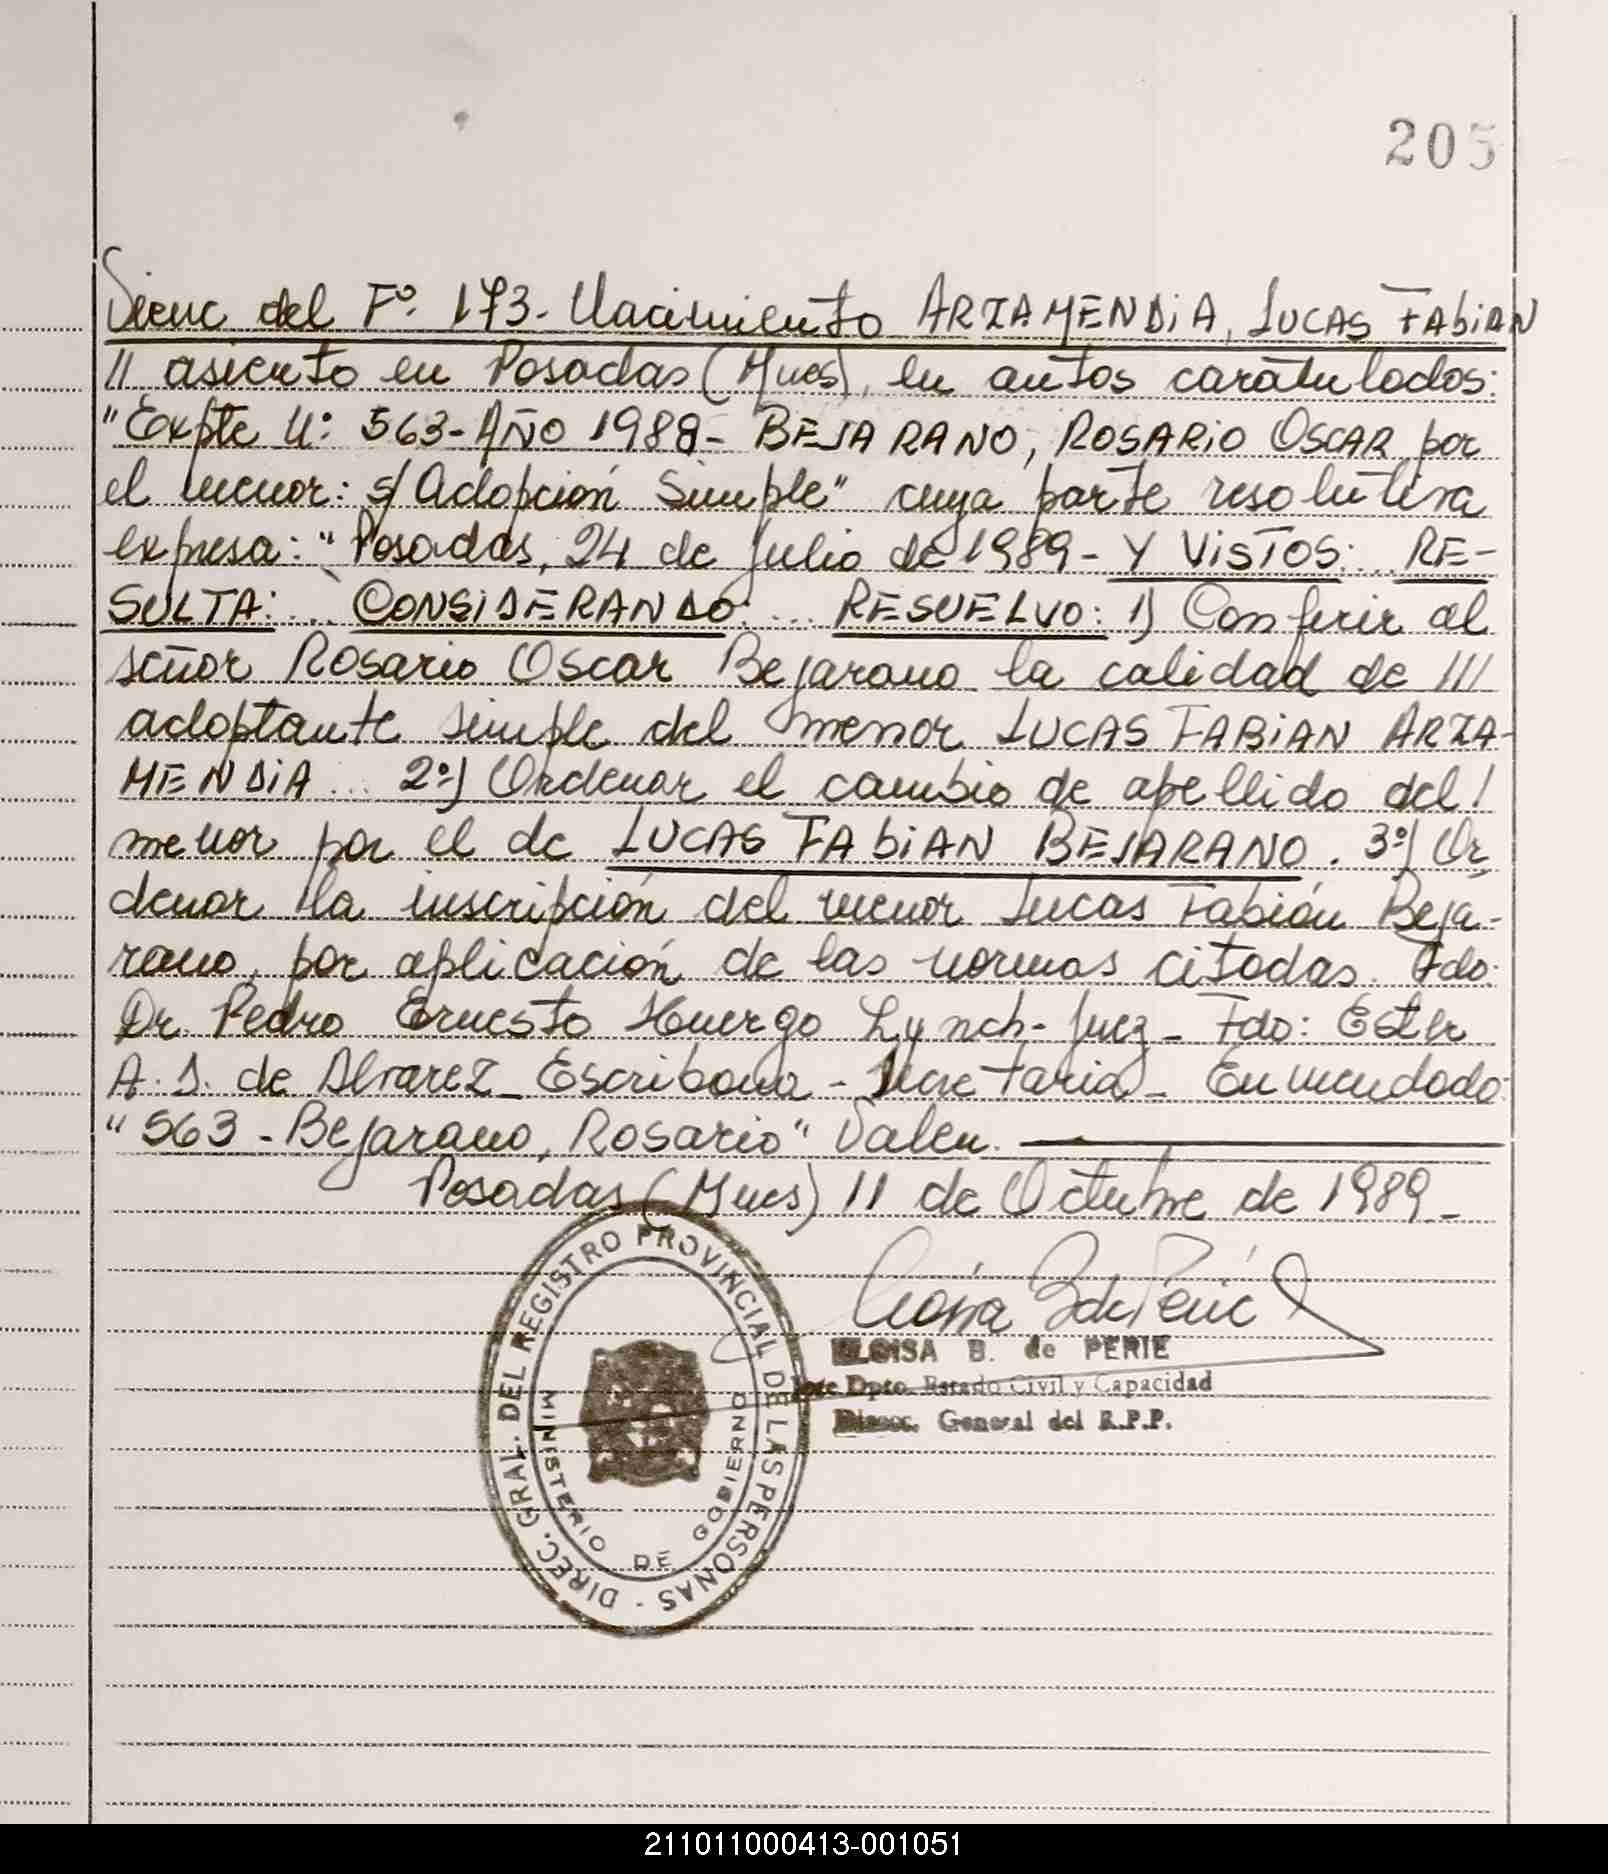 205
Viene del Fº. 173- Nacimiento ARZAMENDIA, LUCAS FAbiAN
// asiento en Posadas (Mnes), en autos caratulados:
"Expte N: 563-AÑO 1988- BEJARANO, ROSARIO OSCAR por
el menor: s/ Adopción Simple" cuya parte resolutiva
expresa: "Posadas, 24 de julio de 1989- Y VISTOS:... RE-
SULTA:... CONSIDERANDO:... RESUELVO: 1) Conferir al
señor Rosario Oscar Bejarano la calidad de ///
adoptante simple del menor LUCAS FABIAN ARZA-
MENDIA... 2º) Ordenar el cambio de apellido del /
menor por el de LUCAS FAbiAN BEJARANO. 3º) Or,
denar la inscripción del menor Lucas Fabián Beja-
rano, por aplicación de las normas citadas. Fdo:
Dr. Pedro Ernesto Huergo Lynch- Juez- Fdo: Ester
A. S. de Alvarez- Escribana - Secretaria- Enmendado:
"563 - Bejarano, Rosario" Valen.
Posadas (Mnes) 11 de Octubre de 1989-
ELOISA B. de PERIE
Jefe Dpto. Estado Civil y Capacidad
Direcc. General del R.P.P.
DIREC. GRAL. DEL REGISTRO PROVINCIAL DE LAS PERSONAS -
MINISTERIO DE GOBIERNO
211011000413-001051